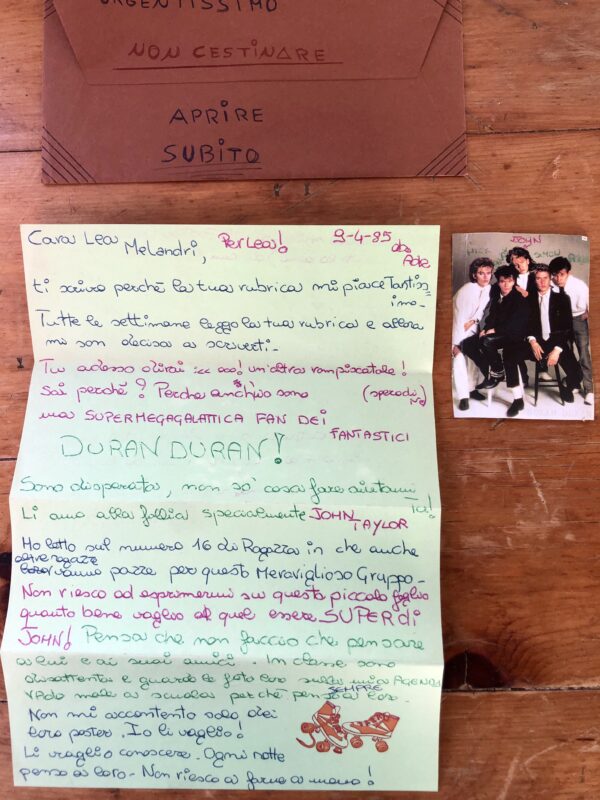 URGENTISSIMO
NON CESTINARE
APRIRE
SUBITO
Cara Lea Melandri, Per Lea! 9-4-85
da Ade
ti scrivo perché la tua rubrica mi piace Tantiss=
imo-
Tutte le settimane leggo la tua rubrica e allora
mi son decisa a scriverti-
Tu adesso dirai: un'altra rompiscatole!
Sai perché? Perche anch'io sono (spero di No)
una SUPERMEGAGALATTICA FAN DEI
FANTASTICI
DURAN DURAN!
Sono disperata, non so' cosa fare aiutami
Li amo alla follia specialmente JOHN
TAYLOR
Ho letto sul numero 16 di Ragazza in che anche
altre ragazze
vanno pazze per questo Meraviglioso Gruppo-
Non riesco ad esprimermi su questo piccolo foglio
quanto bene voglio a quel essere SUPER di
JOHN! Pensa che non faccio che pensare
a lui e ai suoi amici. In classe sono
disattenta e guardo le foto loro sulla mia AGENDA
VAdo male a scuola perché penso a loro-
SEMPRE
Non mi accontento solo dei
loro poster. Io li voglio!
Li voglio conoscere. Ogni notte
penso a loro- Non riesco a farne a meno!
JOHN
SIMON